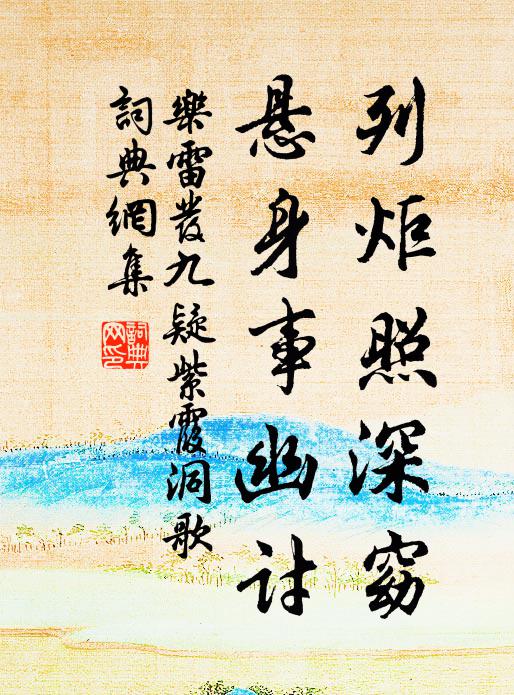 列炬照深窈
悬身事幽讨
樂雷发九疑紫霞洞歌
詞典網集
詞典网印